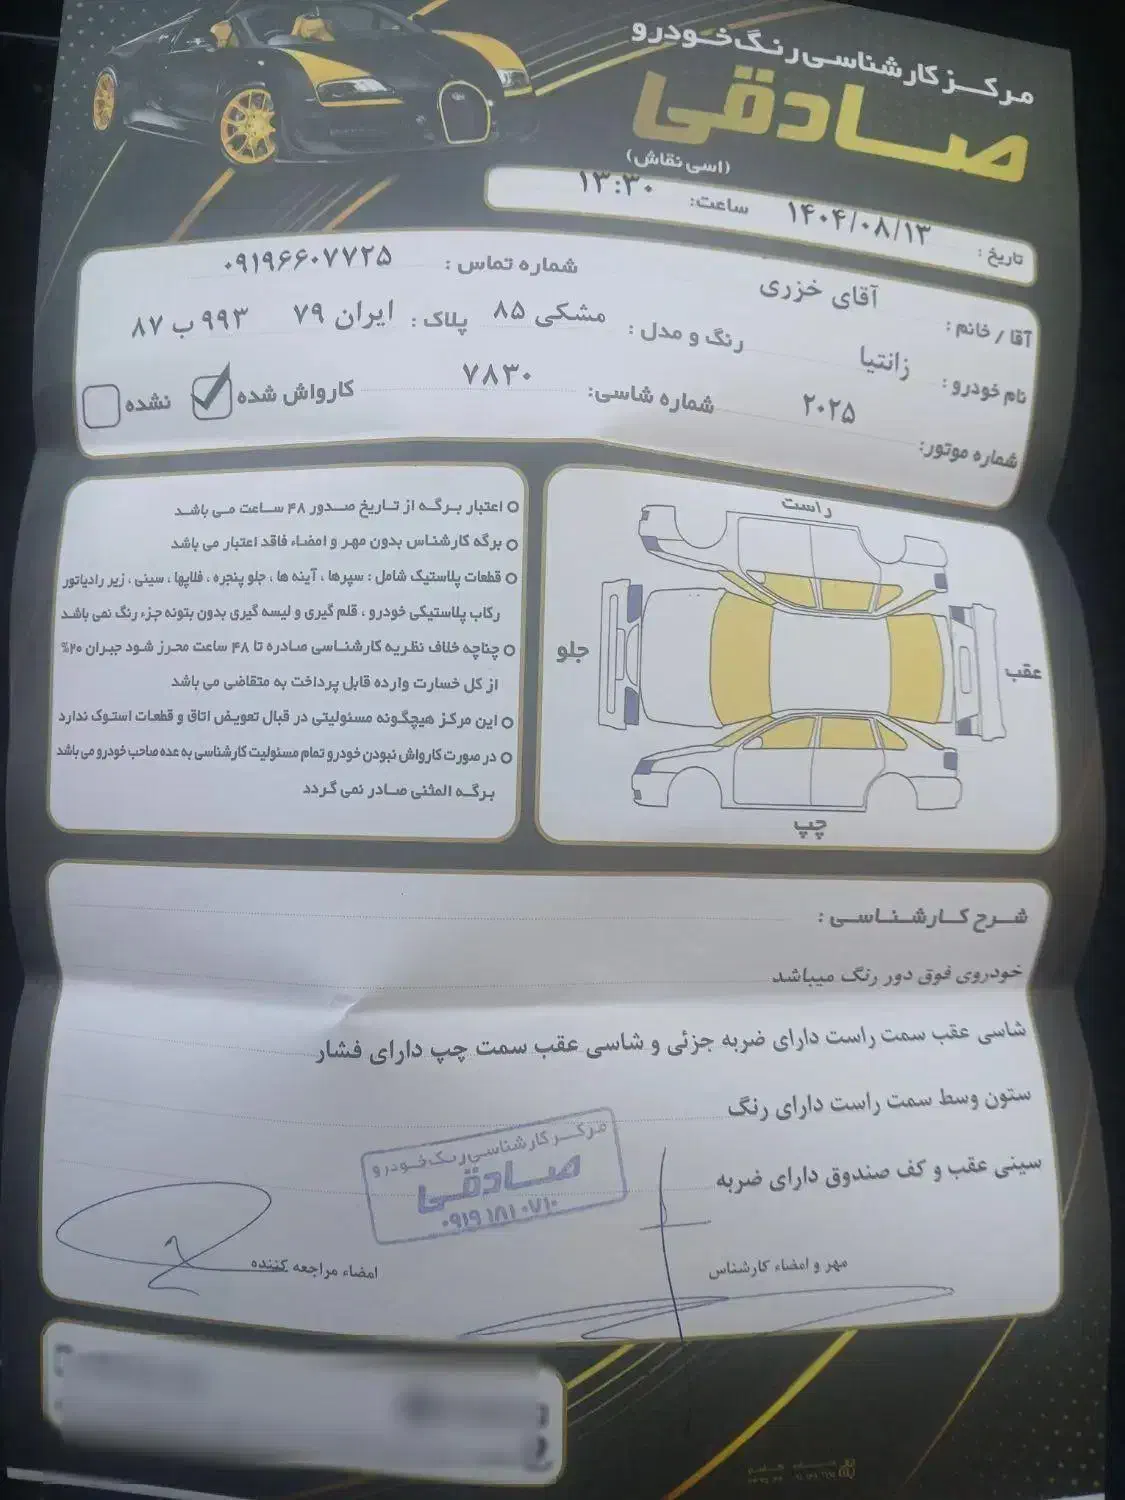 مرکز کارشناسی رنگ خودرو
صادقی
(اسی نقاش)
تاریخ : ۱۴۰۴/۰۸/۱۳ ساعت: ۱۳:۳۰
آقا / خانم : آقای خزری شماره تماس : ۰۹۱۹۶۶۰۷۷۲۵
نام خودرو : زانتیا رنگ و مدل : مشکی ۸۵ پلاک : ایران ۷۹ ۹۹۳ ب ۸۷
شماره موتور: ۲۰۲۵ شماره شاسی: ۷۸۳۰ کارواش شده نشده
راست
جلو
عقب
چپ
اعتبار برگه از تاریخ صدور ۴۸ ساعت می باشد
برگه کارشناس بدون مهر و امضاء فاقد اعتبار می باشد
قطعات پلاستیک شامل : سپرها ، آینه ها ، جلو پنجره ، فلاپها ، سینی ، زیر رادیاتور
رکاب پلاستیکی خودرو ، قلم گیری و لیسه گیری بدون بتونه جزء رنگ نمی باشد
چناچه خلاف نظریه کارشناسی صادره تا ۴۸ ساعت محرز شود جبران ۲۰%
از کل خسارت وارده قابل پرداخت به متقاضی می باشد
این مرکز هیچگونه مسئولیتی در قبال تعویض اتاق و قطعات استوک ندارد
در صورت کارواش نبودن خودرو تمام مسئولیت کارشناسی به عده صاحب خودرو می باشد
برگه المثنی صادر نمی گردد
شرح کارشناسی :
خودروی فوق دور رنگ میباشد
شاسی عقب سمت راست دارای ضربه جزئی و شاسی عقب سمت چپ دارای فشار
ستون وسط سمت راست دارای رنگ
سینی عقب و کف صندوق دارای ضربه
مرکز کارشناسی رنگ خودرو
صادقی
۰۹۱۹ ۱۸۱ ۰۷۱۰
مهر و امضاء کارشناس
امضاء مراجعه کننده